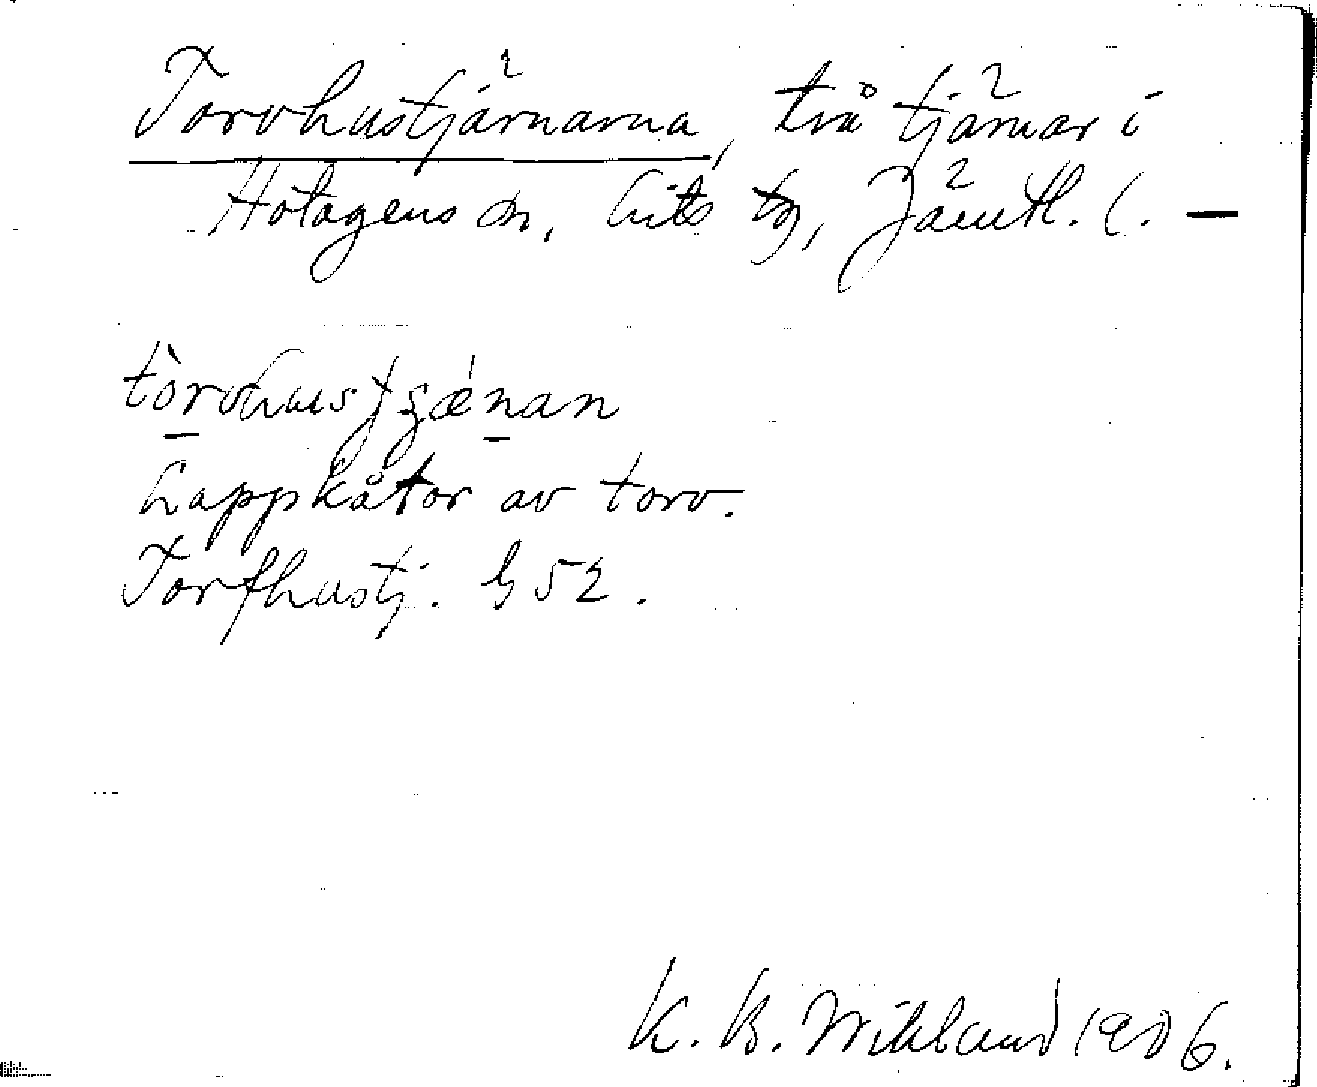 Torvhustjärnarna, två tjärnar i
Hotagens sn, Lits tg, Jämtl. l. —
tòrvhusʃʂǽnan
Lappkåtor av torv.
Torfhustj. G 52.
K. B. Wiklund 1906.